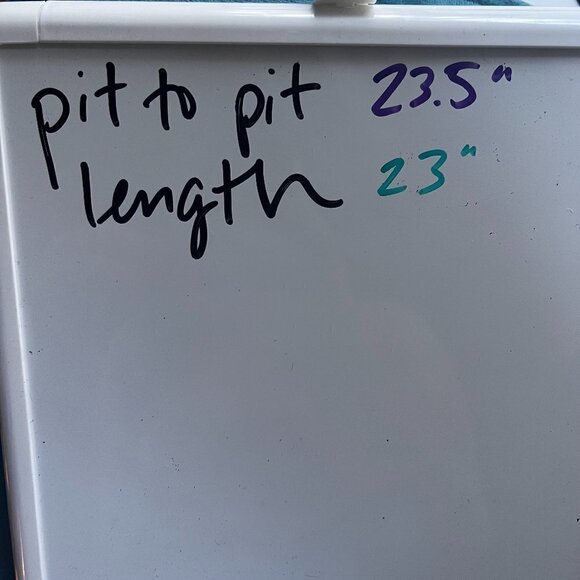 pit to pit 23.5"
length 23"